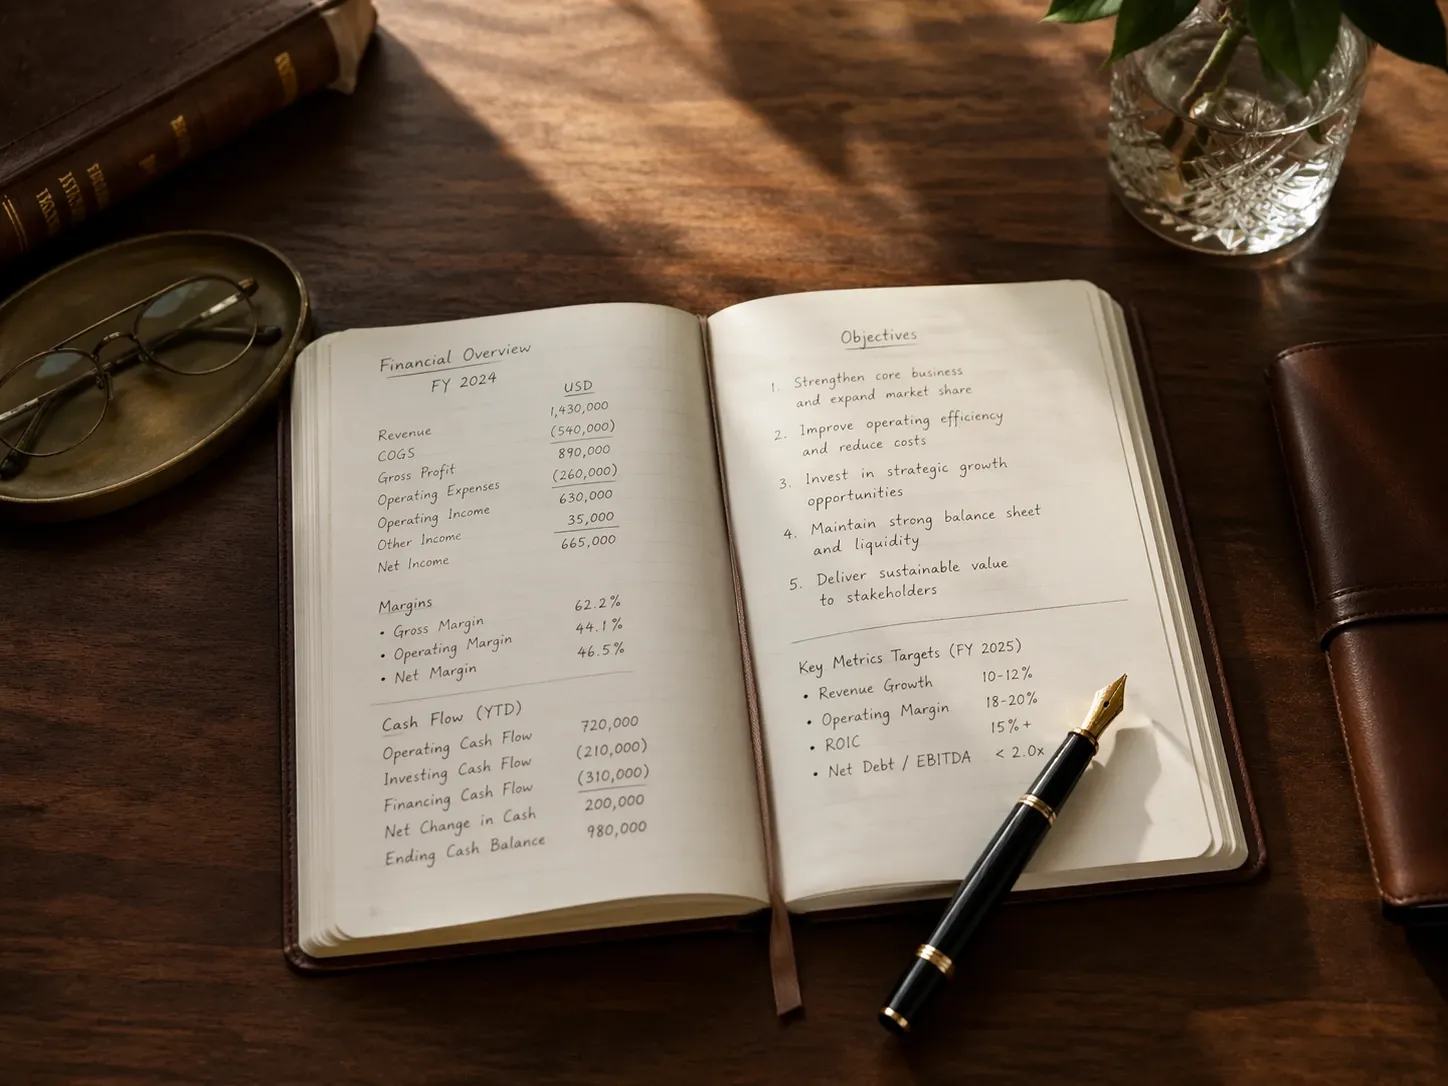 Financial Overview
FY 2024
USD
Revenue 1,430,000
COGS (540,000)
Gross Profit 890,000
Operating Expenses (260,000)
Operating Income 630,000
Other Income 35,000
Net Income 665,000
Margins
• Gross Margin 62.2%
• Operating Margin 44.1%
• Net Margin 46.5%
Cash Flow (YTD)
Operating Cash Flow 720,000
Investing Cash Flow (210,000)
Financing Cash Flow (310,000)
Net Change in Cash 200,000
Ending Cash Balance 980,000
Objectives
1. Strengthen core business
and expand market share
2. Improve operating efficiency
and reduce costs
3. Invest in strategic growth
opportunities
4. Maintain strong balance sheet
and liquidity
5. Deliver sustainable value
to stakeholders
Key Metrics Targets (FY 2025)
• Revenue Growth 10-12%
• Operating Margin 18-20%
• ROIC 15%+
• Net Debt / EBITDA < 2.0x